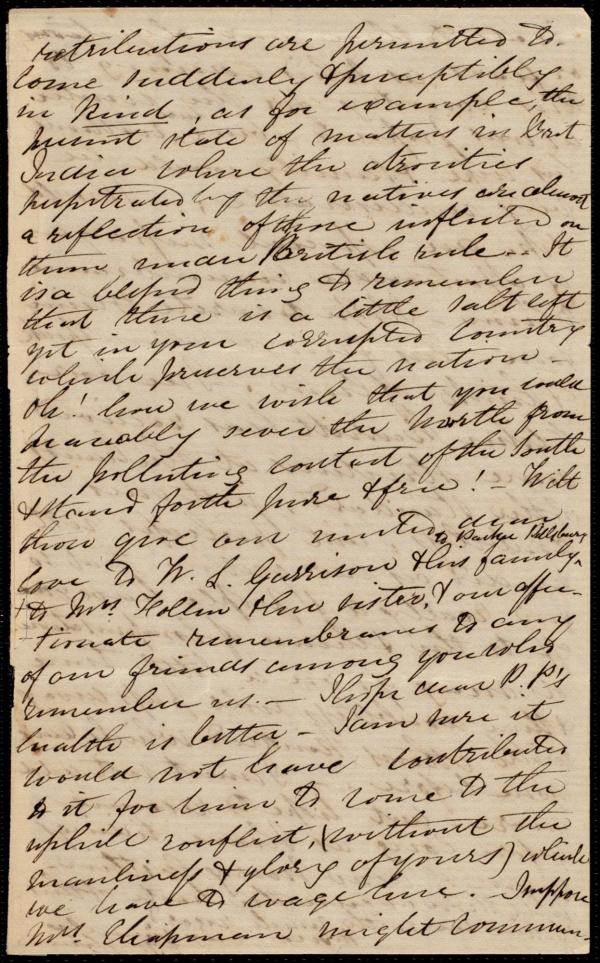 retributions are permitted to
come suddenly & perceptibly
in kind, as for example, the
present state of matters in Brit
India where the atrocities
perpetrated by the natives are almost
a reflection of those inflicted on
them under British rule -. It
is a blessed thing to remember
that there is a little salt left
yet in your corrupted country
which preserves the nation -
Oh! how we wish that you could
peaceably sever the North from
the polluting contact of the South
& stand forth pure & free! - Wilt
thou give our united dear
love to W. L. Garrison & his family,
to Parker Pillsbury
to Mrs Follen & her sister, & our affec-
tionate remembrances to any
of our friends among you who
remember us. - I hope dear P. P's
health is better - I am sure it
would not have contributed
to it for him to come to the
uphill conflict, (without the
manliness & glory of yours) which
we have to wage here. - I suppose
Mrs. Chapman might commun-